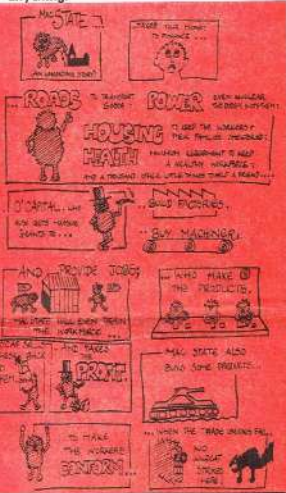 MAC
STATE...
AN UNENDING STORY!
...TAKES YOUR MONEY
TO FINANCE...
... ROADS
TO TRANSPORT
GOODS:
POWER
EVEN NUCLEAR,
HOUSING
TO KEEP THE WORKERS &
THEIR FAMILIES
HEALTH
MINIMUM REQUIREMENT TO KEEP
A HEALTHY WORKFORCE:
AND A THOUSAND OTHER LITTLE THINGS TO HELP A FRIEND....
O'CAPITAL, WHO
ALSO GETS
GRANTS TO...
...BUILD FACTORIES.
...BUY MACHINERY,
AND PROVIDE JOBS,
MAC STATE WILL EVEN TRAIN
THE WORKFORCE...
...WHO MAKE
THE PRODUCTS.
HE TAKES
THE
PROFIT.
MAC STATE ALSO
SOME PRODUCTS...
TO MAKE
THE WORKERS
CONFORM...
...WHEN THE TRADE UNIONS FAIL...
NO
WILDCAT
STRIKES
HERE